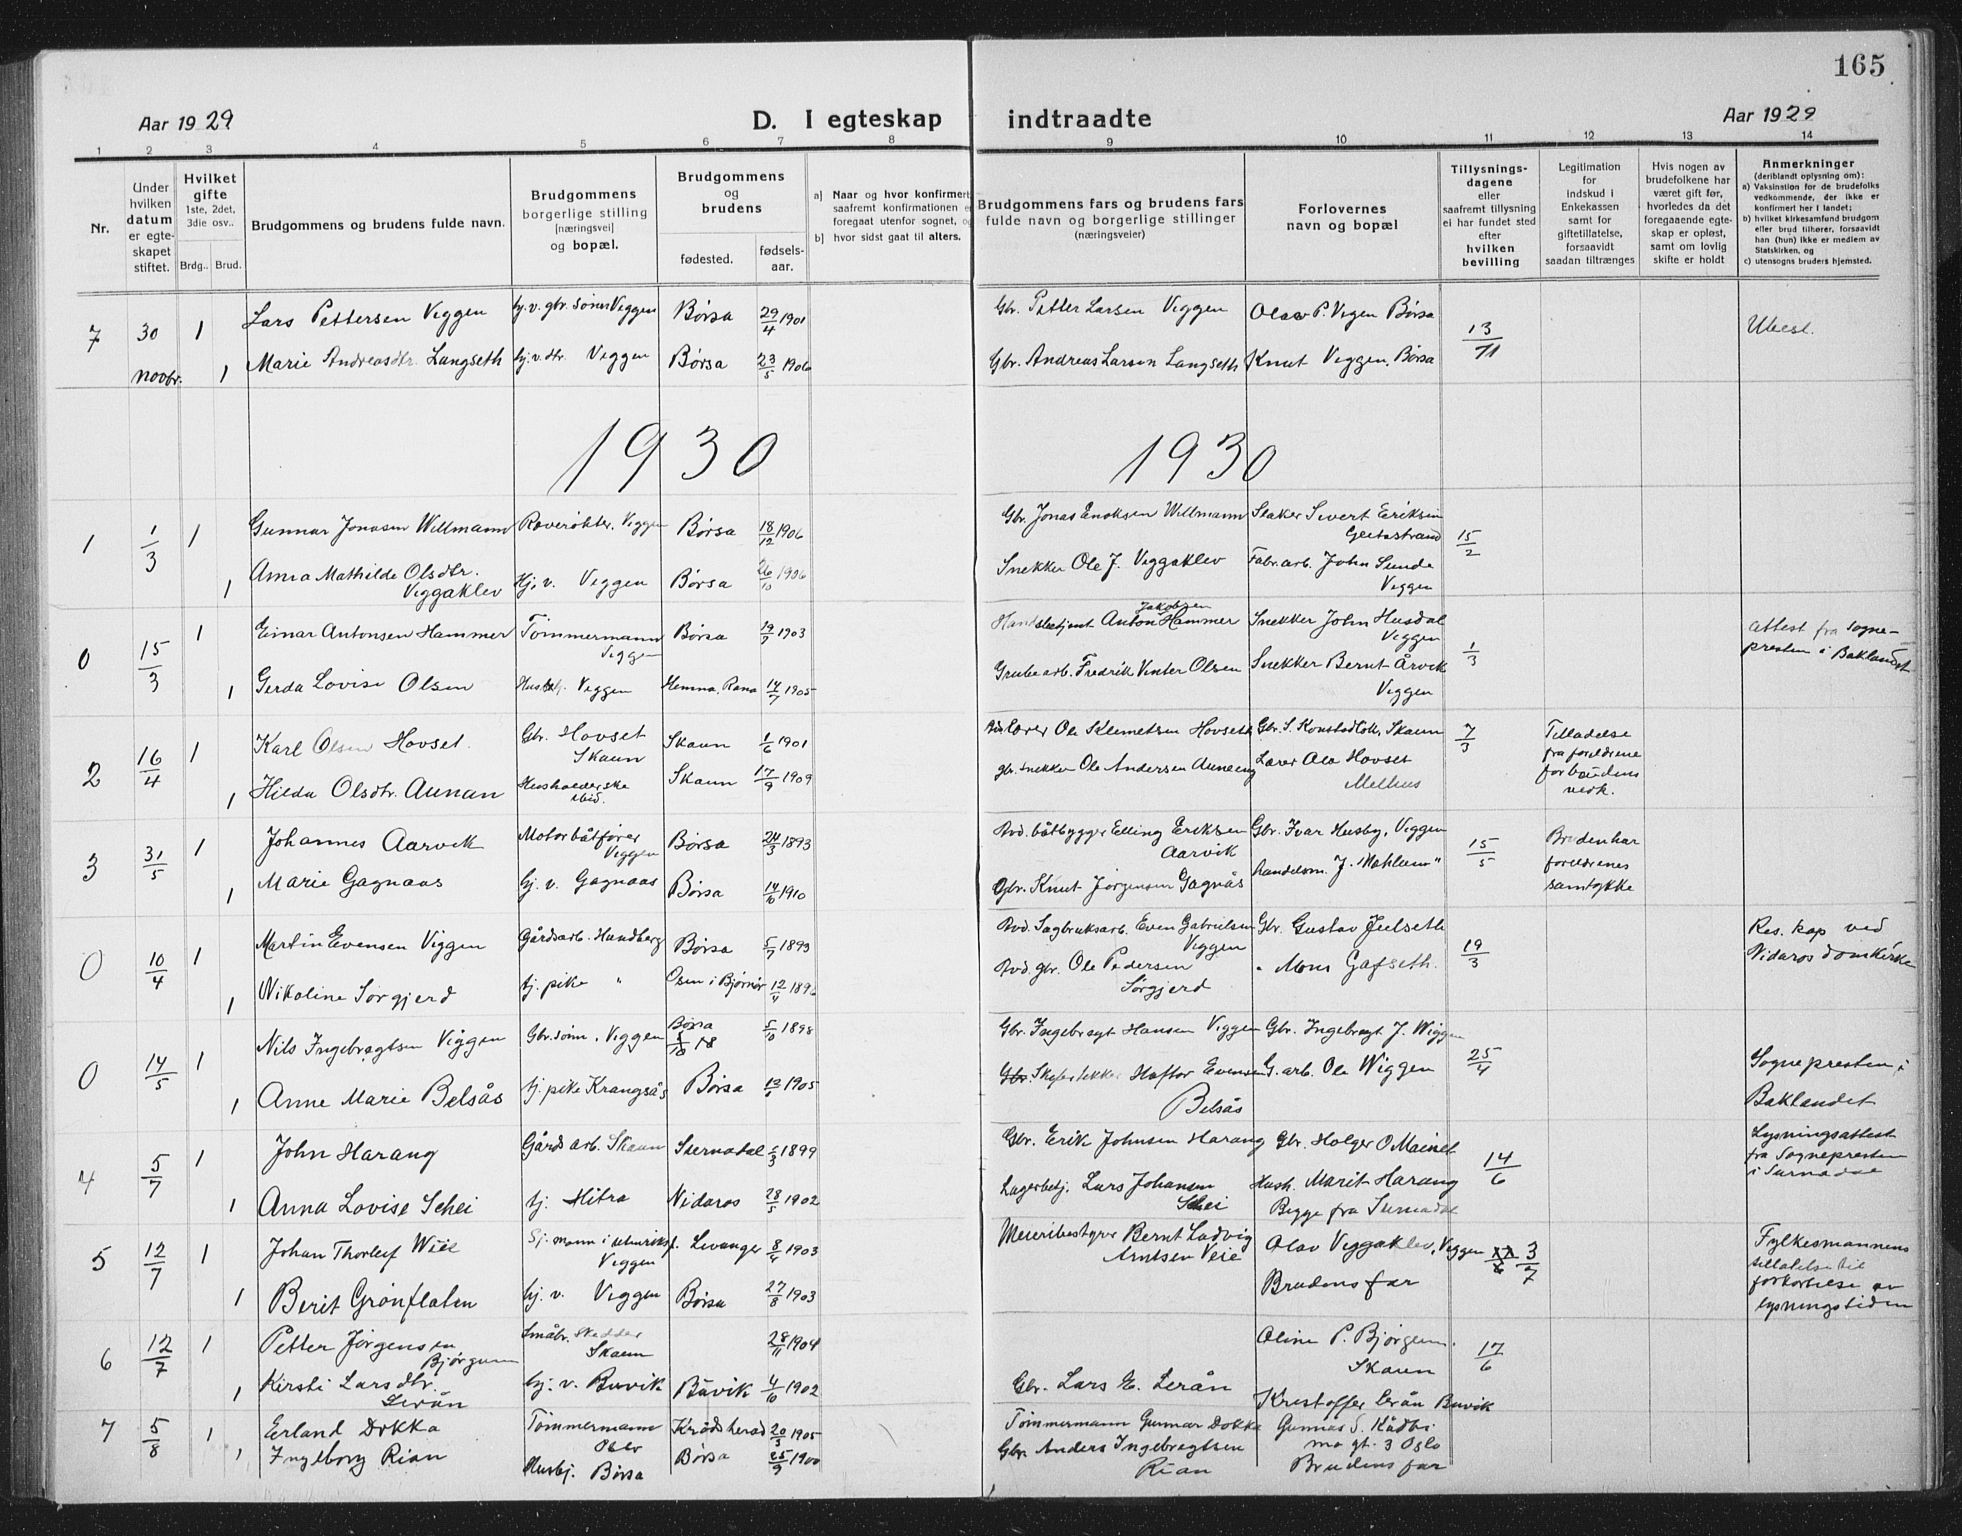 165
Aar 1929
D. I egteskap indtraadte
Aar 1929
1 2 3 4 5 6 7 8 9 10 11 12 13 14
Nr.
Under
hvilken
datum
er egte-
skapet
stiftet.
Hvilket
gifte
1ste, 2det,
3die osv..
Brdg.. Brud.
Brudgommens og brudens fulde navn.
Brudgommens
borgerlige stilling
[næringsvei]
og bopæl.
Brudgommens
og
brudens
fødested.
fødsels-
aar.
a) Naar og hvor konfirmert
saafremt konfirmationen e
foregaat utenfor sognet, og
b) hvor sidst gaat til alters.
Brudgommens fars og brudens fars
fulde navn og borgerlige stillinger
(næringsveier)
Forlovernes
navn og bopæl
Tillysnings-
dagene
eller
saafremt tillysning
ei har fundet sted
efter
hvilken
bevilling
Legitimation
for
indskud i
Enkekassen
samt for
giftetillatelse,
forsaavidt
saadan tiltrænges
Hvis nogen av
brudefolkene har
været gift før,
hvorledes da det
foregaaende egte-
skap er opløst,
samt om lovlig
skifte er holdt
Anmerkninger
(deriblandt oplysning om):
a) Vaksination for de brudefolks
vedkommende, der ikke er
konfirmert her i landet;
b) hvilket kirkesamfund brudgom
eller brud tilhører, forsaavidt
han (hun) ikke er medlem av
Statskirken, og
c) utensogns bruders hjemsted.
7 30 1 Lars Pettersen Viggen hj. v. gbr. sønn Viggen Børsa 29/4 1901 Gbr. Petter Larsen Viggen Olav P. Vigen Børsa 13/11
novbr. 1 Marie Andreasdtr. Langseth hj. v. dtr. Viggen Børsa 23/5 1906 Gbr. Andreas Larsen Langseth Knut Viggen, Børsa
1930 1930
1 1/3 1 Gunnar Jonasen Willmann Viggen Børsa 18/12 1906 Gbr. Jonas Enoksen Willmann Sivert Eriksen
Geitastrand 15/2
1 Anna Mathilde Olsdtr.
Viggaklev Hj. v. Viggen Børsa 26/10 1906 Snekker Ole J. Viggaklev Fabr. arb. John Sunde
Viggen
0 15/3 1 Einar Antonsen Hammer Tømmermann
Viggen Børsa 19/7 1903 Anton Jakobsen Hammer Snekker John Husdal
Viggen 1/3 attest fra sogne-
presten i Baklandet
1 Gerda Lovise Olsen Viggen Hemna, Rana 14/7 1905 Grubearb. Fredrik Vinter Olsen Snekker Bernt Årvik
Viggen
2 16/4 1 Karl Olsen Hovset. Gbr. Hovset
Skaun Skaun 1/6 1901 Lærer Ole Klemetsen Hovseth Gbr. S. Skaun 7/3 Tilladelse
fra foreldrene
for brudens
vedk.
1 Hilda Olsdtr. Aunan Husholderske
ibid. Skaun 17/9 1909 gbr. snekker Ole Andersen Lærer Ola Hovset
Melhus
3 31/5 1 Johannes Aarvik Motorbåtfører
Viggen Børsa 24/3 1893 Avd. båtbygger Elling Eriksen
Aarvik Gbr. Ivar Husby, Viggen 15/5 Bruden har
foreldrenes
samtykke
1 Marie Gagnaas hj. v. Gagnaas Børsa 14/10 1910 Gbr. Knut Jørgensen Gagnås Handelsm. J. Mehlum "
0 10/4 1 Martin Evensen Viggen Gårdsarb. Handberg Børsa 5/7 1893 Avd. Sagbruksarb. Even Gabrielsen
Viggen Gbr. Gustav Jeelseth 19/3 Res. kap ved
Nidaros domkirke
1 Nikoline Sørgjerd tj. pike " Osen i Bjørnør 12/4 Avd. gbr. Ole Pedersen
Sørgjerd " Mons Gafseth.
0 14/5 1 Nils Ingebregtsen Viggen Gbr. sønn, Viggen Børsa 5/10 1898 Gbr. Ingebregt Hansen Viggen Gbr. Ingebregt J. Wiggen 25/4 Sognepresten i
Baklandet
1 Anne Marie Belsås tj. pike Krangsås Børsa 1905 Haftor Evensen
Belsås G. arb. Ole Wiggen
4 5/7 1 John Harang Gårdsarb. Skaun Surnadal 1899 Gbr. Erik Johnsen Harang Gbr. Holger O Mainet 14/6 Lysningsattest
fra Sognepresten
i Surnadal
1 Anna Lovise Schei tj. Hitra Nidaros 28/5 1902 Lagerbetj. Lars Johansen
Schei Hush. Marit Harang
Begge fra Surnadal
5 12/7 1 Johan Thorleif Wiie Sj. mann i utenriksf.
Viggen Levanger 8/4 1903 Meieribestyrer Bernt Ludvig
Arntsen Veie Olav Viggaklev, Viggen 3/7 Fylkesmannens
tillatelse til
forkortelse av
lysningstiden
1 Berit Grønfleten hj. v. Viggen Børsa 27/8 1903 Brudens far
6 12/7 1 Petter Jørgensen
Bjørgum Småbr.
Skaun 28/11 1904 Oline P. Bjørgum.
Skaun 17/6
1 Kirsti Larsdtr.
Lerån hj. v. Buvik Buvik 4/10 1902 Gbr. Lars E. Lerån Kristoffer Lerån Buvik
7 5/8 1 Erland Dokka Tømmermann
Oslo Krødsherad 20/3 1905 Tømmermann Gunnar Dokka Gunnar S.
gt. 3 Oslo
1 Ingeborg Rian Husbj. Børsa Børsa 25/9 1900 Gbr Anders Ingebregtsen
Rian Brudens far